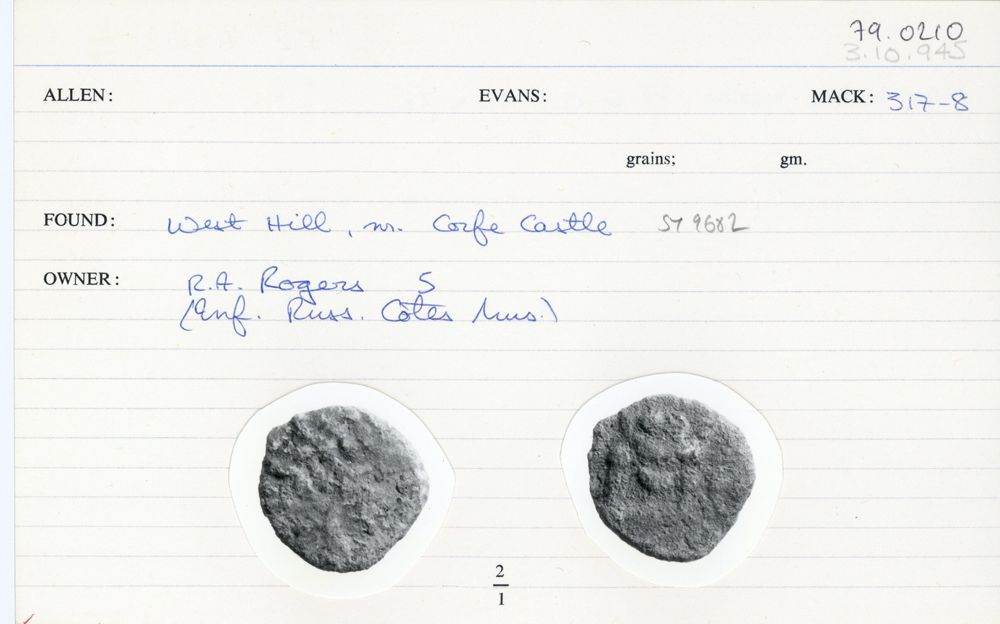 79.0210
3.10.945
ALLEN: EVANS: MACK: 317-8
grains; gm.
FOUND: West Hill, nr. Corfe Castle SY 9682
OWNER: R.A. Rogers 5
(Inf. Russ. Cotes Mus.)
2
1